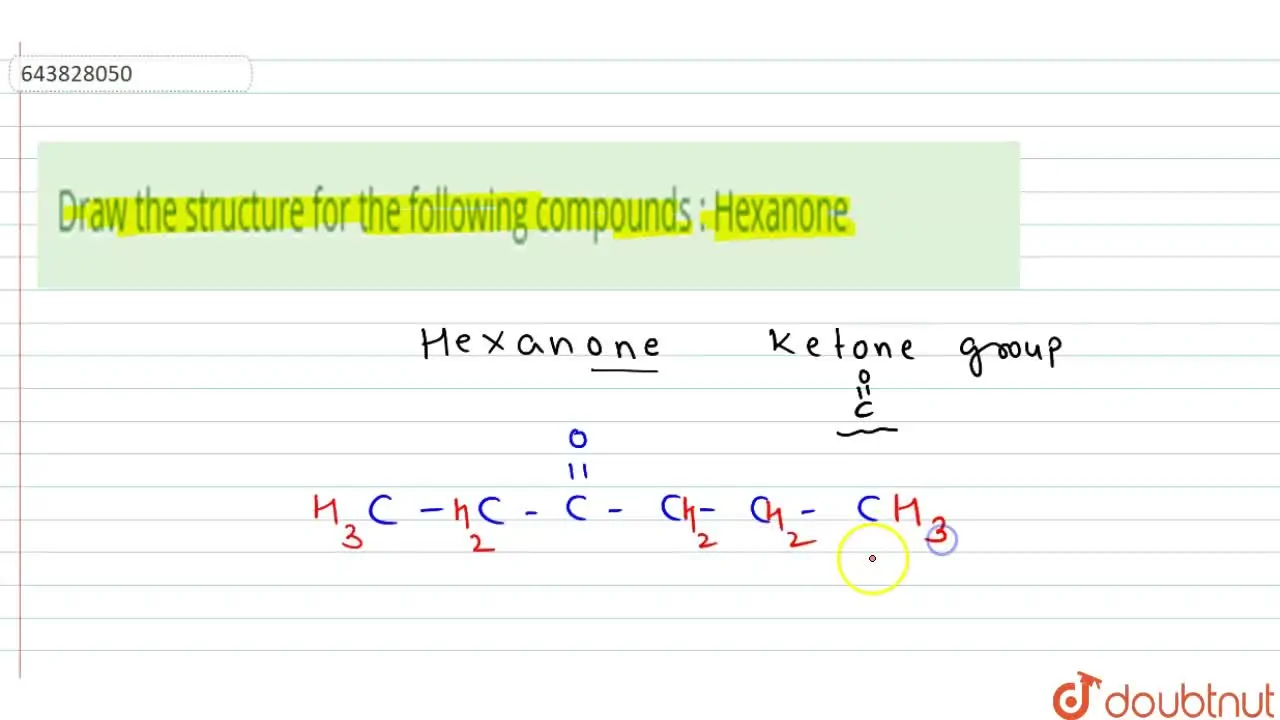 643828050
Draw the structure for the following compounds : Hexanone
Hexanone Ketone group
O
||
C
O
||
H3C - H2C - C - CH2 - CH2 - CH3
doubtnut